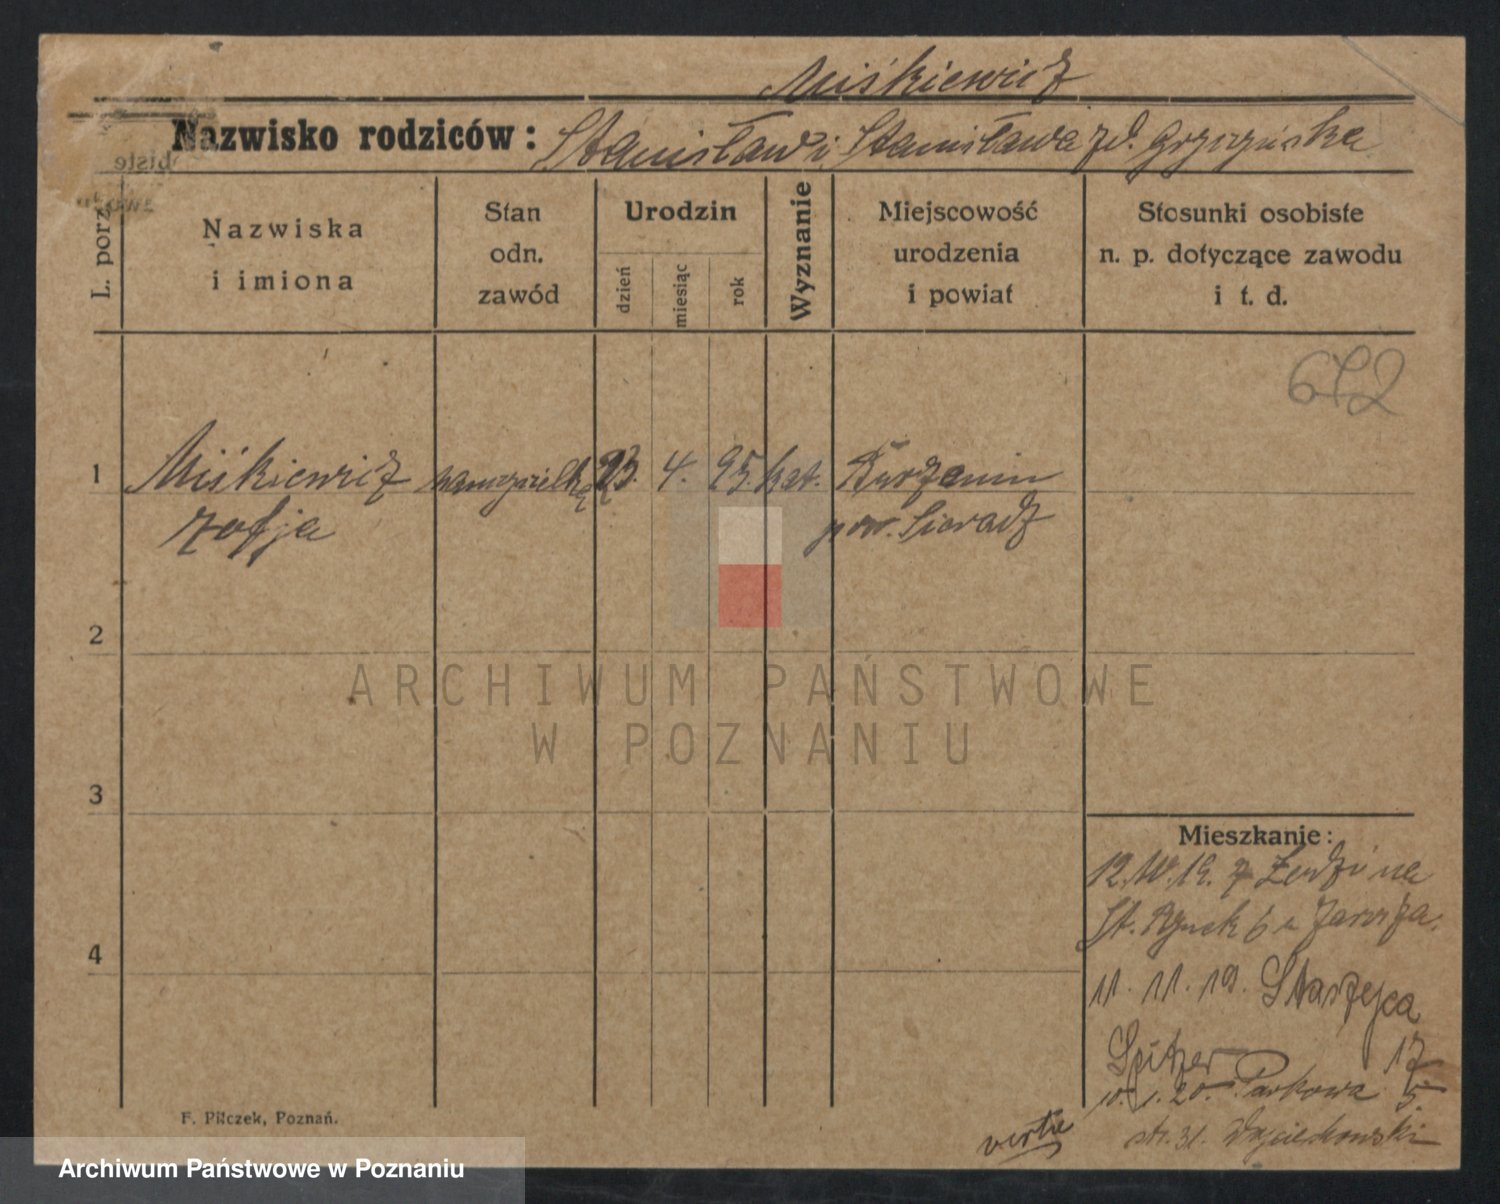 Miśkiewicz
Nazwisko rodziców: Stanisław i Stanisława zd. Grzyzińska
L. porz.
Nazwiska
i imiona
Stan
odn.
zawód
Urodzin
dzień
miesiąc
rok
Wyznanie
Miejscowość
urodzenia
i powiat
Stosunki osobiste
n. p. dotyczące zawodu
i t. d.
672
1 Miśkiewicz 23. 4. 95. kat.
Zofja pow. Sieradz
2
3
4
Mieszkanie:
12. 19. z Łodzi na
St. Rynek 6
11. 11. 19.
Spitzer 17
10. 1. 20. Parkowa 5.
str. 31. Wojciechowski
verte
F. Pilczek, Poznań.
ARCHIWUM PAŃSTWOWE
W POZNANIU
Archiwum Państwowe w Poznaniu